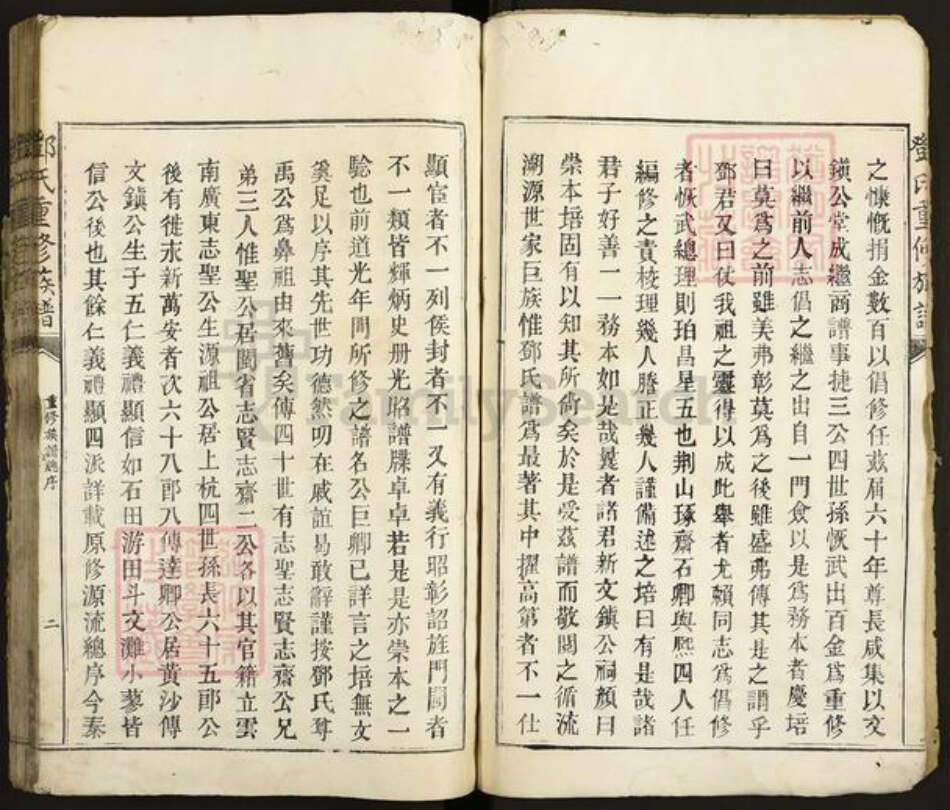 之慷慨捐金數百以倡修任茲屆六十年尊長咸集以文
鎮公堂成繼商譜事捷三公四世孫恢武出百金爲重修
以繼前人志倡之繼之出自一門僉以是爲務本者慶培
曰莫爲之前雖美弗彰莫爲之後雖盛弗傳其是之謂乎
鄧君又曰仗我祖之靈得以成此舉者尤賴同志爲倡修
者恢武總理則珀昌星五也荆山琢齋石卿與熙四人任
編修之責校理幾人謄正幾人謹備述之培曰有是哉諸
君子好善一一務本如是哉曩者諸君新文鎮公祠顏曰
崇本培固有以知其所尚矣於是受茲譜而敬閱之循流
溯源世家巨族惟鄧氏譜爲最著其中擢高第者不一仕
顯宦者不一列侯封者不一又有義行昭彰詔旌門閭者
不一類皆輝炳史册光昭譜牒卓卓若是是亦崇本之一
騐也前道光年間所修之譜名公巨卿已詳言之培無文
奚足以序其先世功德然叨在戚誼曷敢辭謹按鄧氏尊
禹公爲鼻祖由來舊矣傳四十世有志聖志賢志齋公兄
弟三人惟聖公居閩省志賢志齋二公各以其官籍立雲
南廣東志聖公生源祖公居上杭四世孫長六十五郎公
後有徙永新萬安者次六十八郎八傳達卿公居黃沙傳
文鎮公生子五仁義禮顯信如石田游田斗文灘小蓼皆
信公後也其餘仁義禮顯四派詳載原修源流總序今秦
鄧氏重修族譜
重修族譜總序
二
鄧氏重修族譜
FamilySearch